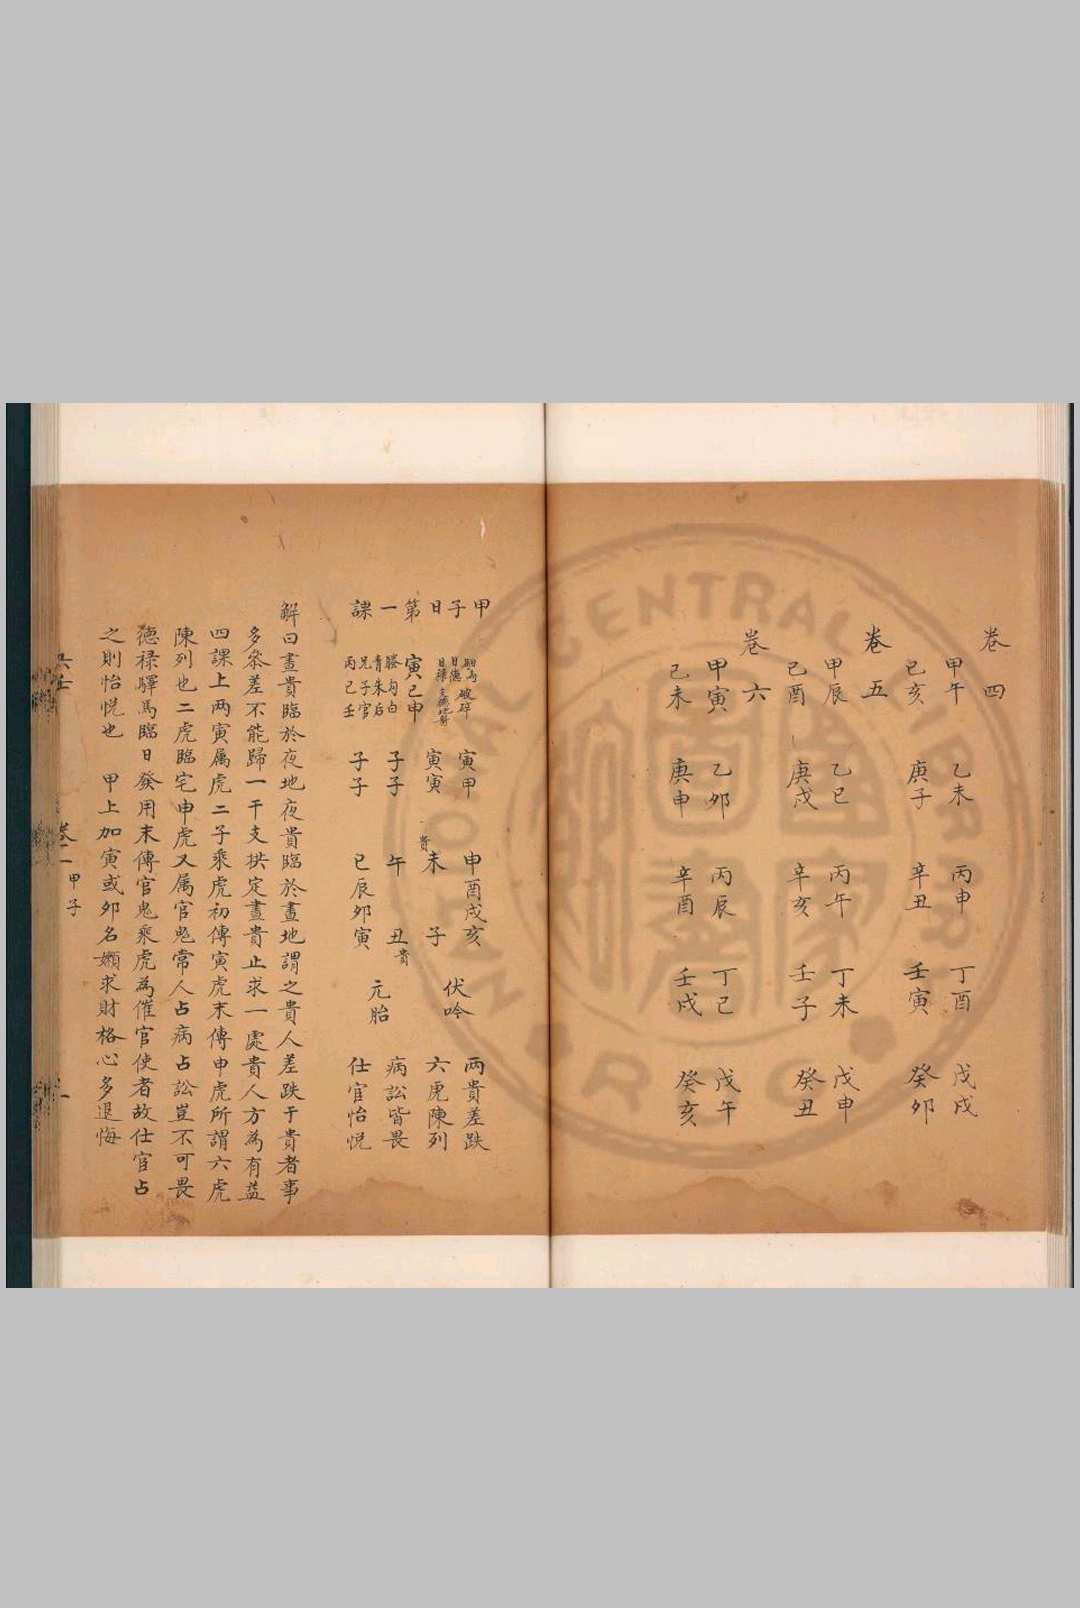 卷四
甲午 乙未 丙申 丁酉 戊戌
己亥 庚子 辛丑 壬寅 癸卯
卷五
甲辰 乙巳 丙午 丁未 戊申
己酉 庚戌 辛亥 壬子 癸丑
卷六
甲寅 乙卯 丙辰 丁巳 戊午
己未 庚申 辛酉 壬戌 癸亥
甲子日第一課
馹馬 破碎
日德
日祿
寅巳申
螣勾白
青朱后
兄子官
丙己壬
寅甲
寅寅
子子
子子
申酉戌亥
貴未 子
午 丑貴
巳辰卯寅
伏吟
元胎
兩貴差跌
六虎陳列
病訟皆畏
仕宦怡悅
解曰晝貴臨於夜地夜貴臨於晝地謂之貴人差跌于貴者事
多參差不能歸一干支拱定晝貴止求一處貴人方為有益
四課上兩寅属虎二子乘虎初傳寅虎末傳申虎所謂六虎
陳列也二虎臨宅申虎又属官鬼常人占病占訟豈不可畏
德祿驛馬臨日發用末傳官鬼乘虎為催官使者故仕宦占
之則怡悅也 甲上加寅或卯名嬾求財格心多退悔
六壬 卷一 甲子 一
NATIONAL CENTRAL LIBRARY
R.O.C.